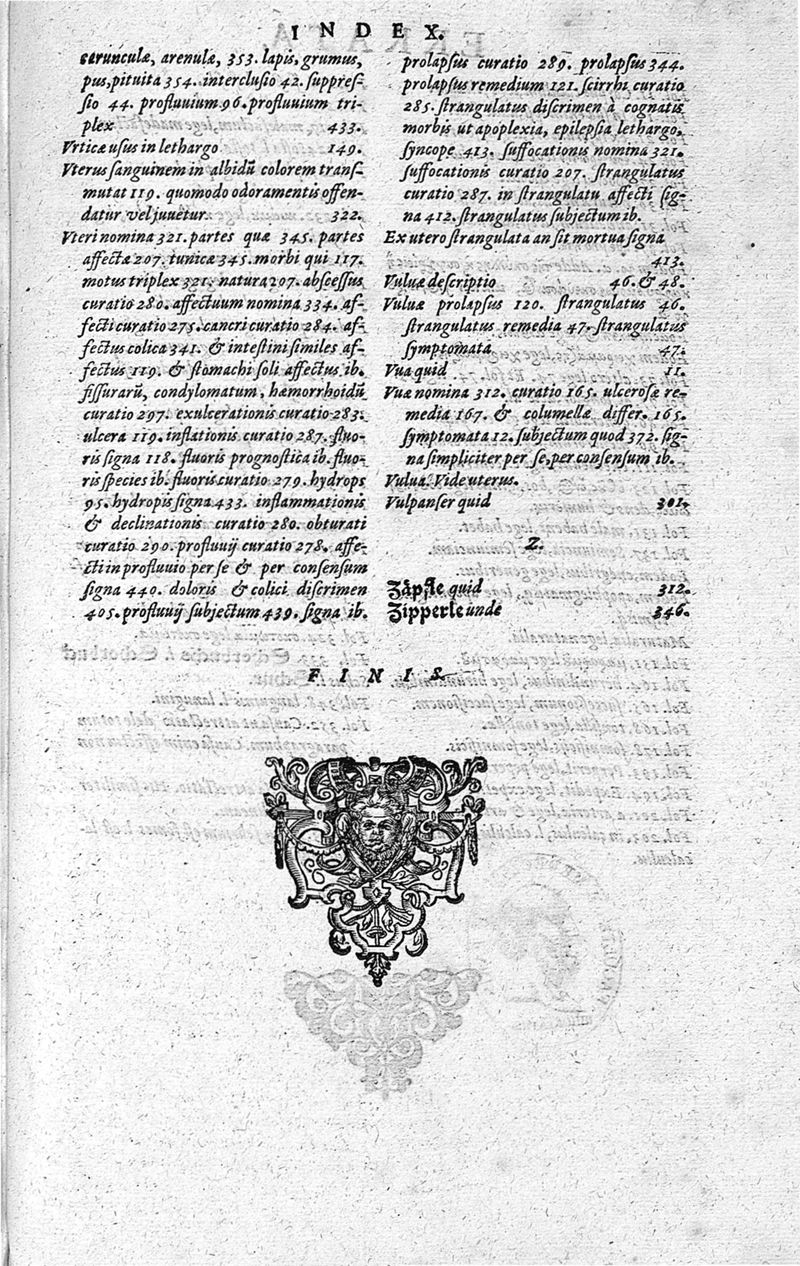 INDEX.
carunculæ, arenulæ, 353. lapis, grumus,
pus, pituita 354. interclusio 42. suppres-
sio 44. profluvium 96. profluvium tri-
plex 433.
Vrticæ usus in lethargo 149.
Vterus sanguinem in albidū colorem trans-
mutat 119. quomodo odoramentis offen-
datur vel juvetur 322.
Vteri nomina 321. partes quæ 345. partes
affectæ 207. tunicæ 345. morbi qui 117.
motus triplex 321. natura 207. abscessus
curatio 280. affectuum nomina 334. af-
fecti curatio 275. cancri curatio 284. af-
fectus colica 341. & intestini similes af-
fectus 119. & stomachi soli affectus ib.
fissurarū, condylomatum, hæmorrhoidū
curatio 297. exulcerationis curatio 283.
ulcera 119. inflationis curatio 287. fluo-
ris signa 118. fluoris prognostica ib. fluo-
ris species ib. fluoris curatio 279. hydrops
95. hydropis signa 433. inflammationis
& declinationis curatio 280. obturati
curatio 290. profluvij curatio 278. affe-
cti in profluvio per se & per consensum
signa 440. doloris & colici discrimen
405. profluvij subjectum 439. signa ib.
prolapsus curatio 289. prolapsus 344.
prolapsus remedium 121. scirrhi curatio
285. strangulatus discrimen à cognatis
morbis ut apoplexia, epilepsia, lethargo,
syncope 413. suffocationis nomina 321.
suffocationis curatio 207. strangulatus
curatio 287. in strangulatu affecti sig-
na 412. strangulatus subjectum ib.
Ex utero strangulata an sit mortua signa
413.
Vulvæ descriptio 46. & 48.
Vulvæ prolapsus 120. strangulatus 46.
strangulatus remedia 47. strangulatus
symptomata 47.
Vua quid 11.
Vuæ nomina 312. curatio 165. ulcerosæ re-
media 167. & columellæ differ. 165.
symptomata 12. subjectum quod 372. sig-
na simpliciter per se, per consensum ib.
Vulua. Vide uterus.
Vulpanser quid 301.
Z.
Zäpfle quid 312.
Zipperle unde 346.
FINIS.